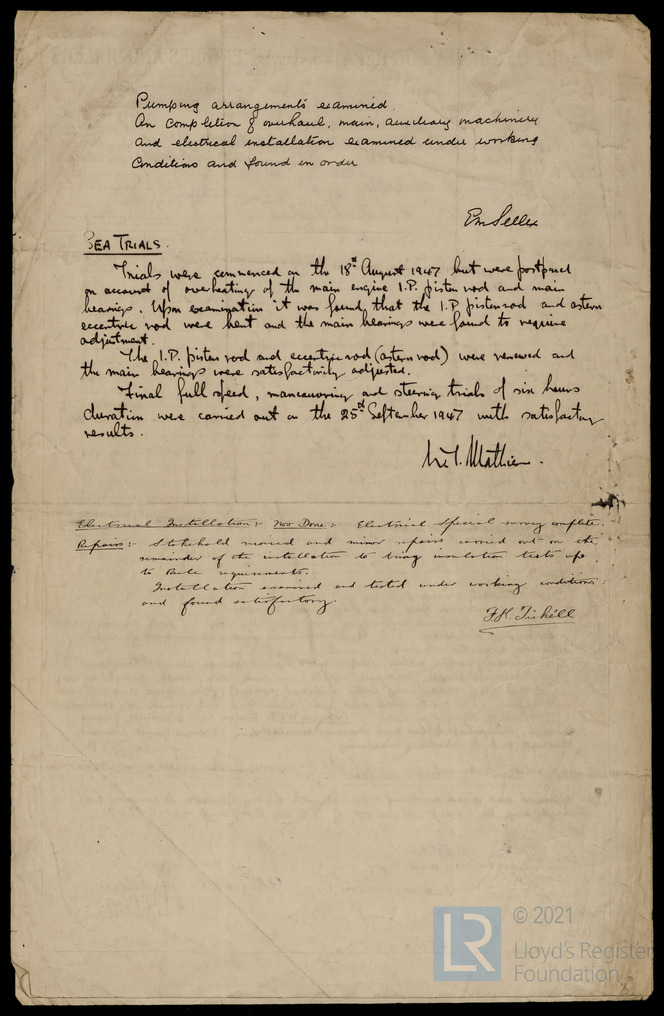 Pumping arrangements examined.
On completion of overhaul, main, auxiliary machinery
and electrical installation examined under working
conditions and found in order
SEA TRIALS.
Trials were commenced on the 18th August 1947 but were postponed
on account of overheating of the main engine I.P. piston rod and main
bearings. Upon examination it was found that the I.P. piston rod and astern
eccentric rod were bent and the main bearings were found to require
adjustment.
The I.P. piston rod and eccentric rod (astern rod) were renewed and
the main bearings were satisfactorily adjusted.
Final full speed, manoeuvring and steering trials of six hours
duration were carried out on the 25th September 1947 with satisfactory
results.
Electrical Installation:- Now Done:- Electrical Special survey complete.
Repairs:- Stokehold rewired and minor repairs carried out on the
remainder of the installation to bring insulation tests up
to Rule requirements.
Installation examined and tested under working conditions
and found satisfactory.
F.K. Tickell
LR
© 2021
Lloyd's Register
Foundation